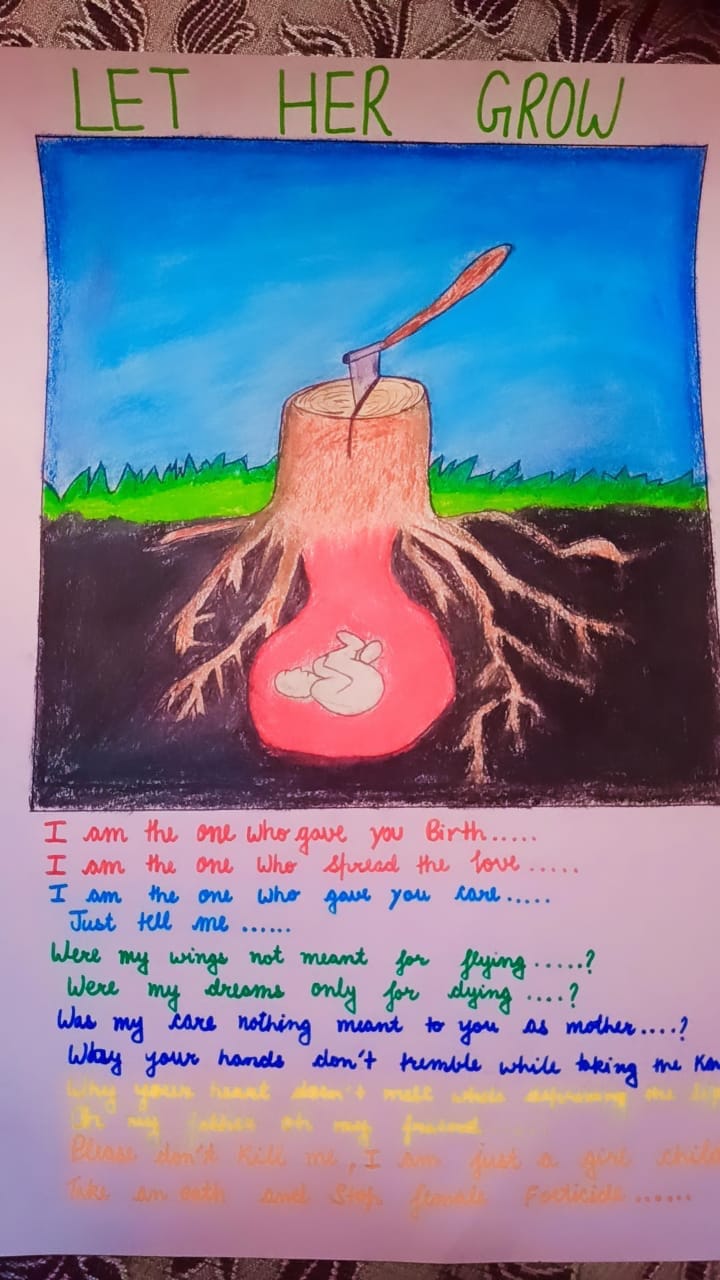 LET HER GROW
I am the one who gave you Birth.....
I am the one Who spread the love .....
I am the one who gave you care.....
Just tell me ......
Were my wings not meant for flying .....?
Were my dreams only for dying ....?
Was my care nothing meant to you as mother....?
Whay your hands don't tremble while taking the
Why your heart doesn't melt while the
Oh my father oh my
Please don't Kill me, I am just a girl child
Take an oath and Stop female Foeticide ......